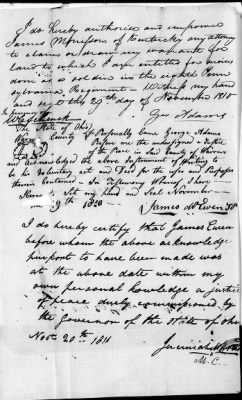 I do hereby authorise and impower
James Morrison of Kentucky my attorney
to claim or draw my warrant for
land to which I am entitled for services
done as a soldier in the eighth Penn
sylvania Regiment – Witness my hand
and seal this 29th day of November 1810
In presence of
Geo Adams
The State of Ohio
County Personally came George Adams
Before me the undersigned a Justice
of the Peace in the County of
and acknowledged the above Instrument of Writing to
be his Voluntary act and Deed for the uses and Purposes
therein Contained – In Testimony Whereof I have
set my Hand and Seal November
29th 1810
James McEwen JP
I do hereby certify that James Ewen
before whom the above acknowledge
purport to have been made was
at the above date within my
own personal knowledge a justice
of peace duly commissioned by
the Governor of the State of Ohio
Nov. 20th 1811
Jeremiah Morrow
M. C.